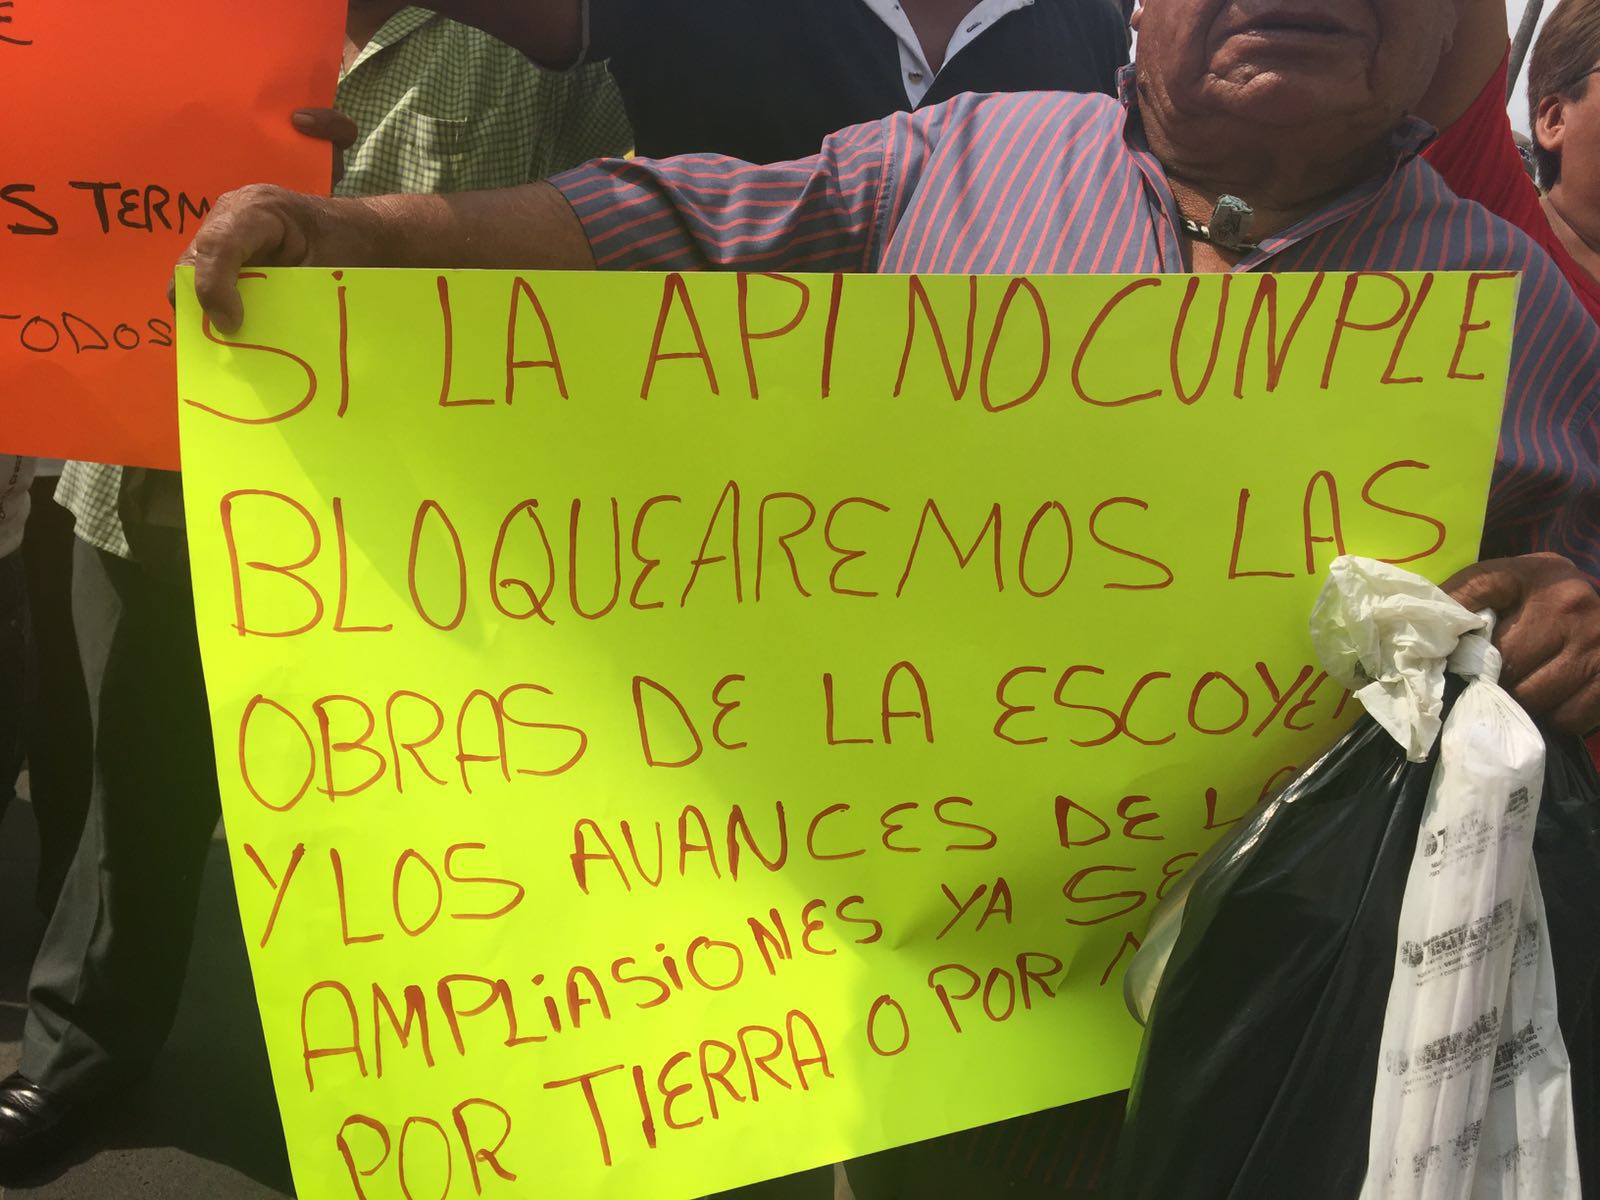 S TERM
TODOS
SI LA API NO CUNPLE
BLOQUEAREMOS LAS
OBRAS DE LA ESCOYE
Y LOS AVANCES DE
AMPLIASIONES YA SE
POR TIERRA O POR